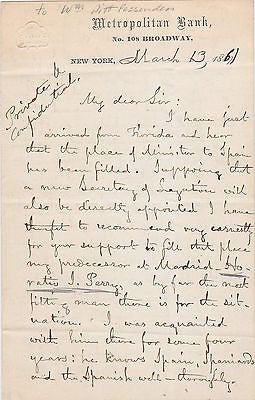 to Wm Pitt Fessenden
Metropolitan Bank,
No. 108 BROADWAY,
NEW YORK, March 13, 1861
Private &
Confidential.
My dear Sir:
I have just
arrived from Florida and hear
that the place of Minister to Spain
has been filled. Supposing that
a new Secretary of Legation will
also be directly appointed I have
thought to recommend very earnestly
for your support to fill that place
my predecessor at Madrid - Ho-
ratio J. Perry, as by far the most
fitting man there is for the sit-
uation. I was acquainted
with him there for some four
years: he knows Spain, Spaniards
and the Spanish well - thoroughly.